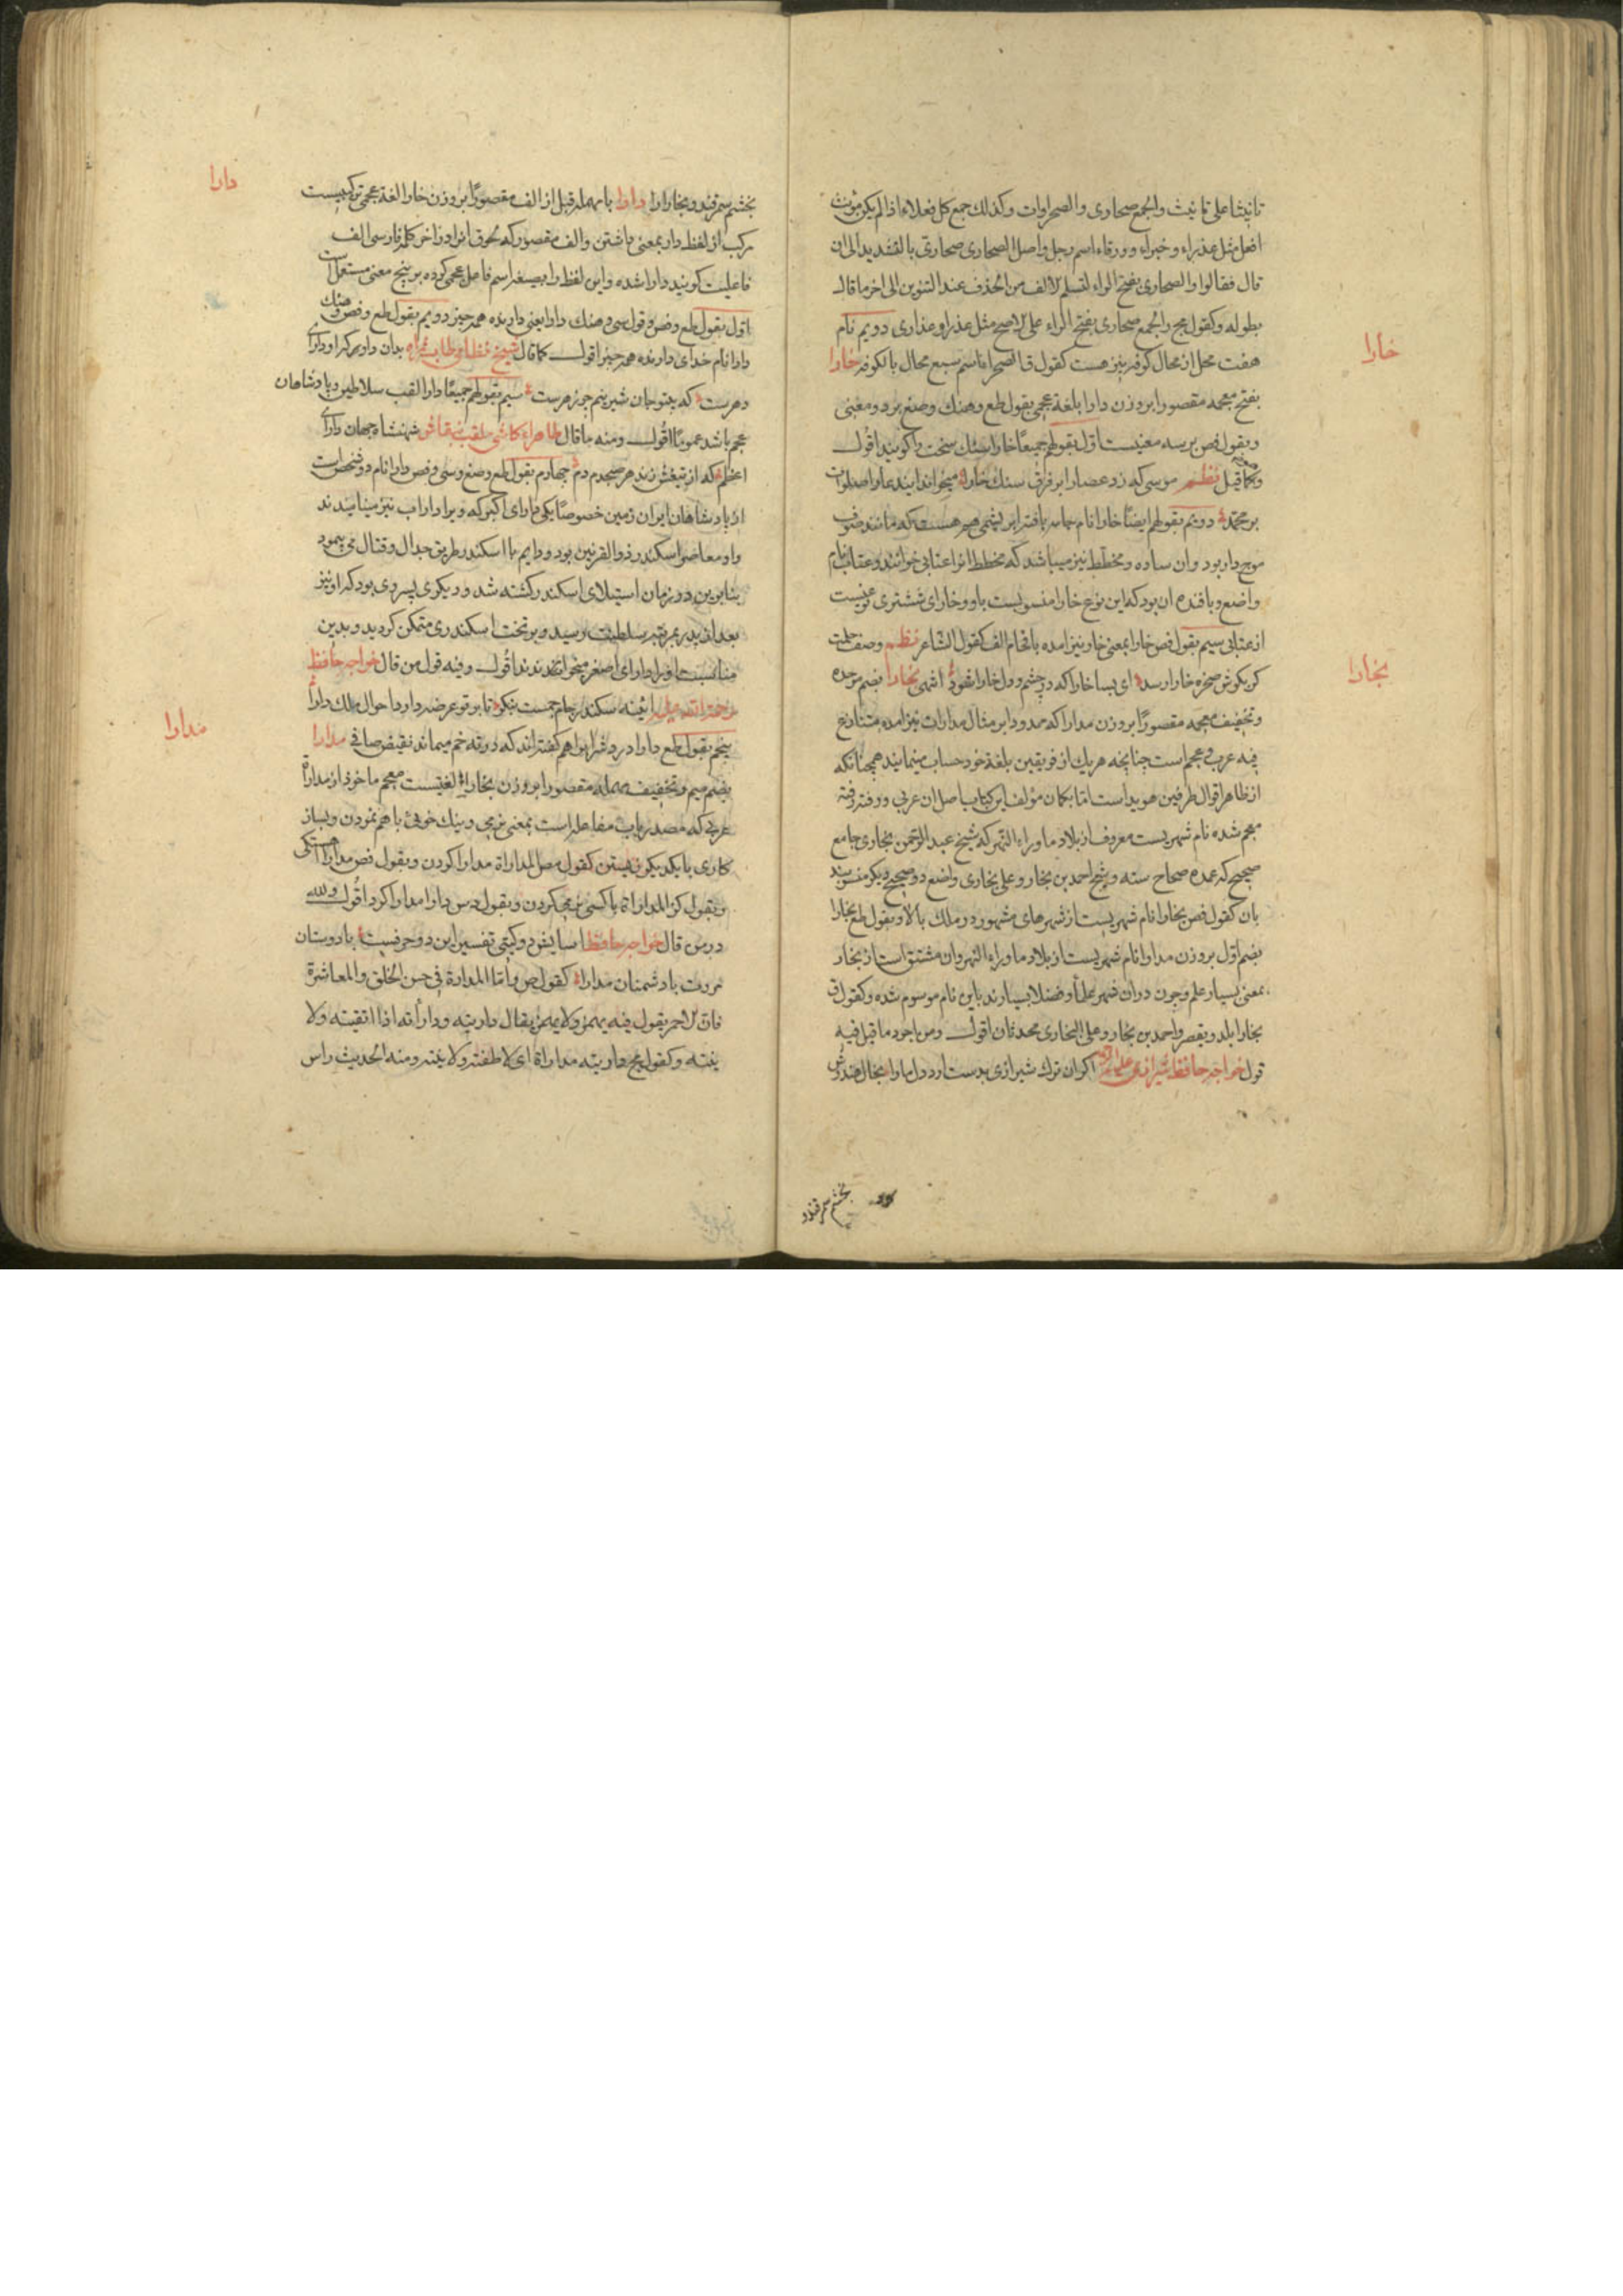 تانیثا علی تانیث والجمع صحاری والصحراوات وکذلک جمع کل فعلاء اذا لم یکن مؤنث
افعل مثل عذراء وخبراء وورقاء اسم رجل واصل الصحاری صحاری بالتشدید الی ان
قال فقالوا الصحاری بفتح الراء لتسلم الالف من الحذف عند التنوین الی اخر ما قال
بطوله وکقول مج والجمع صحاری بفتح الراء علی الاصح مثل عذرا وعذاری دویم نام
هفت محل از محال کوفه نیز هست کقول ق الصحرا اسم سبع محال بالکوفه خارا
خارا
بفتح معجمه مقصورا بر وزن دارا بلغة عجمی بقول طع وهنک وصنع بر دو معنی
وبقول فص بر سه معنیست اول بقولهم جمیعا خارا سنک سخت را کویند اقول
وکما قیل نظم موسی که زد عصا را بر فرق سنک خارا میخواند
بر محمد دویم بقولهم ایضا خارا نام جامه بافته ابریشمی هم هست که مانند صوف
موج دار بود وان ساده ومخطط نیز میباشد که مخطط انرا عتابی خوانند وعتاب نام
واضع وبافنده ان بود که این نوع خارا منسوبست باو وخارای ششتری
از عتابی سیم بقول فص خارا بمعنی خار نیز امده باقحام الف کقول الشاعر نظم وصف حلمت
کر بکوش صخره خارا رسد ای بسا خارا که در چشم ودل خارا شود انتهی بخارا بضم موحده
بخارا
وتخفیف معجمه مقصورا بر وزن مدارا که ممدودا بر مثال مدارات نیز امده متنازع
فیه عرب وعجم است چنانچه هر یک از فریقین بلغة خود حساب مینمایند همچنانکه
از ظاهر اقوال طرفین هویداست اما بکمان مؤلف این کتاب باصل ان عربی ورفته رفته
معجم شده نام شهریست معروف از بلاد ماوراء النهر که شیخ عبد الرحمن بخاری جامع
صحیح که عمده صحاح سته وشیخ احمد بن بخار وعلی بخاری واضع دو صحیح دیکر منسوبند
بان کقول فص بخارا نام شهریست از شهرهای مشهور در ملک بالا وبقول طع بخارا
بضم اول بر وزن مدارا نام شهریست از بلاد ماوراء النهر وان مشتق است از بخار
بمعنی بسیار علم وچون در ان شهر علما وفضلا بسیارند باین نام موسوم شده وکقول ق
بخارا بلد ویقصر واحمد بن بخار وعلی البخاری محدثان اقول ومن اجود ما قیل فیه
قول خواجه حافظ شیرازی علیه الرحمه اکر ان ترک شیرازی بدست ارد دل ما را بخال هندوش
بخشم سمرقند
بخشم سمرقند وبخارا را دارا بامهمله قبل از الف مقصورا بر وزن خارا لغة عجمی ترکیبیست
دارا
مرکب از لفظ دار بمعنی داشتن والف مقصور که لحوق انرا در اخر کلمه فارسی الف
فاعلیت کویند دارا شده واین لفظ را بصیغه اسم فاعل عجمی کرده بر پنج معنی مستعمل است
اول بقول طع وفص وقول سی وهنک دارا یعنی دارنده همه چیز دویم بقول طع وفص وهنک
دارا نام خدای دارنده همه چیز اقول کما قال شیخ نظامی طاب ثراه بدان داور که او دارای
دهرست که بیتو جان شیرینم چو زهرست سیم بقولهم جمیعا دارا لقب سلاطین وپادشاهان
عجم باشد عموما اقول ومنه ما قال طاهراء کاشی ملقب بنقاش شهنشاه جهان دارای
اعظم که از تیغش زند هر صبحدم دم چهارم بقول طع وصنع وسی وفص دارا نام دو شخص است
از پادشاهان ایران زمین خصوصا یکی دارای اکبر که ویرا داراب نیز مینامیدند
واو معاصر اسکندر ذو القرنین بود ودایم با اسکندر طریق جدال وقتال می پیمود
بنابرین در زمان استیلای اسکندر کشته شد ودیکری پسر وی بود که او نیز
بعد از پدر بمرتبه سلطنت رسید وبر تخت اسکندری متمکن کردید وبدین
مناسبت او را دارای اصغر میخواندند اقول وفیه قول من قال خواجه حافظ
رحمة الله علیه ائینه سکندر جام جمست بنکر تا بر تو عرضه دارد احوال ملک دارا
پنجم بقول طع دارا درد شراب را هم کفته‌اند که در ته خم میماند نقیض صافی مدارا
مدارا
بضم میم وتخفیف مهمله مقصورا بر وزن بخارا لغتیست معجم ماخوذ از مداراة
عربی که مصدر باب مفاعله است بمعنی نرمی ونیک خوئی باهم نمودن وبساز
کاری با یکدیکر زیستن کقول مص المداراة مدارا کردن وبقول فص مدارا اهستکی
وبقول کز المداراة با کسی نرمی کردن وبقول درس دارا مدارا کرد اقول ولله
در من قال خواجه حافظ اسایش دو کیتی تفسیر این دو حرفست با دوستان
مروت با دشمنان مدارا کقول ص واما المداراة فی حسن الخلق والمعاشرة
فان الاحمر یقول فیه یهمز ولا یهمز یقال داریته ودارأته اذا اتقیته ولا
ینته وکقول مج داریته مداراة ای لاطفته ولاینته ومنه الحدیث راس